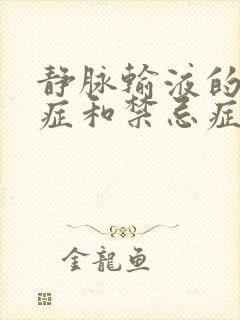 静脉输液的
症和禁忌症
金龍鱼